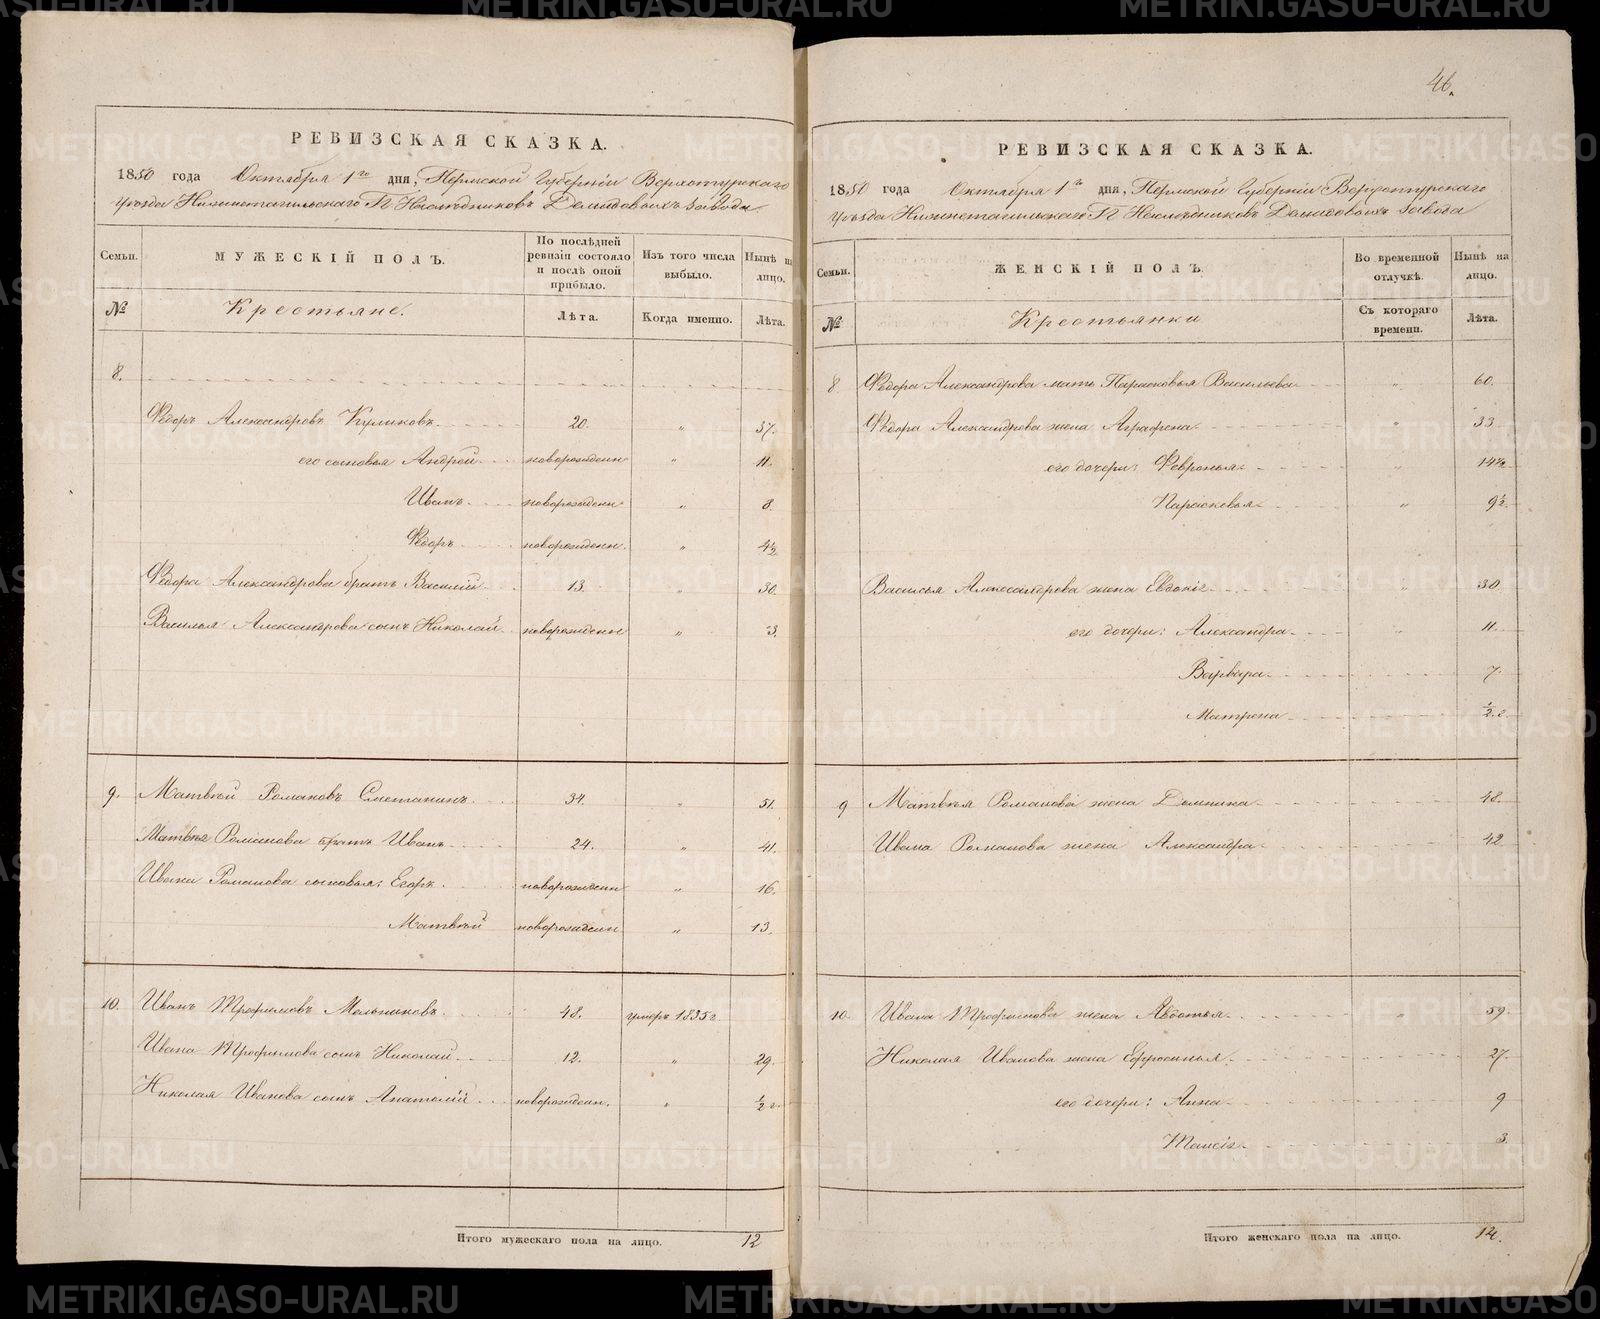 РЕВИЗСКАЯ СКАЗКА.
1850 года Октября 1го дня, Пермской Губернiи Верхотурскаго
уѣзда Нижнетагильскаго Гг. Наслѣдниковъ Демидовыхъ завода
Семьи. МУЖЕСКIЙ ПОЛЪ. По послѣдней ревизiи состояло и послѣ оной прибыло. Изъ того числа выбыло. Нынѣ на лицо.
№ Крестьяне. Лѣта. Когда именно. Лѣта.
8.
Ѳедоръ Александровъ Куликовъ 20. „ 37.
его сыновья Андрей новорожденн „ 11.
Иванъ новорожденн „ 8.
Ѳедоръ новорожденн. „ 4½
Ѳедора Александрова братъ Василiй 13. „ 30.
Василья Александрова сынъ Николай новорожденн „ 3.
9. Матвѣй Романовъ Сметанинъ 34. „ 51.
Матвѣя Романова братъ Иванъ 24. „ 41.
Ивана Романова сыновья: Егоръ новорожденн „ 16.
Матвѣй новорожденн „ 13.
10. Иванъ Трофимовъ Мельниковъ 48. умеръ 1835 г
Ивана Трофимова сынъ Николай 12. „ 29.
Николая Иванова сынъ Анатолiй новорожден. „ ½ г.
Итого мужескаго пола на лицо. 12
46.
РЕВИЗСКАЯ СКАЗКА.
1850 года Октября 1го дня, Пермской Губернiи Верхотурскаго
уѣзда Нижнетагильскаго Гг. Наслѣдниковъ Демидовыхъ завода
Семьи. ЖЕНСКIЙ ПОЛЪ. Во временной отлучкѣ. Нынѣ на лицо.
№ Крестьянки Съ котораго времени. Лѣта.
8 Ѳедора Александрова мать Парасковья Васильева „ 60.
Ѳедора Александрова жена Аграфена „ 33
его дочери: Февронья „ 14½
Парасковья „ 9½.
Василья Александрова жена Евдокiя „ 30
его дочери: Александра „ 11.
Варвара 7.
Матрена ½ г.
9 Матвѣя Романова жена Домника 48.
Ивана Романова жена Александра 42
10. Ивана Трофимова жена Авдотья „ 59.
Николая Иванова жена Ефросинья 27.
его дочери: Анна 9
Таисiя 3.
Итого женскаго пола на лицо. 14.
METRIKI.GASO-URAL.RU